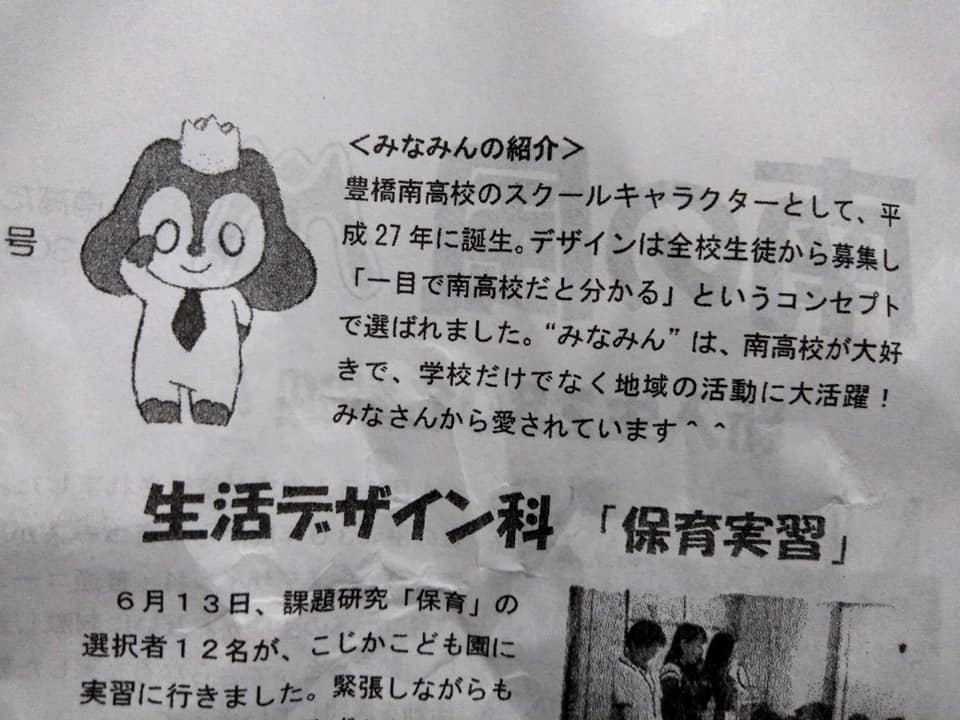 号
<みなみんの紹介>
豊橋南高校のスクールキャラクターとして、平
成27年に誕生。デザインは全校生徒から募集し
「一目で南高校だと分かる」というコンセプト
で選ばれました。“みなみん”は、南高校が大好
きで、学校だけでなく地域の活動に大活躍！
みなさんから愛されています＾＾
生活デザイン科「保育実習」
６月１３日、課題研究「保育」の
選択者１２名が、こじかこども園に
実習に行きました。緊張しながらも